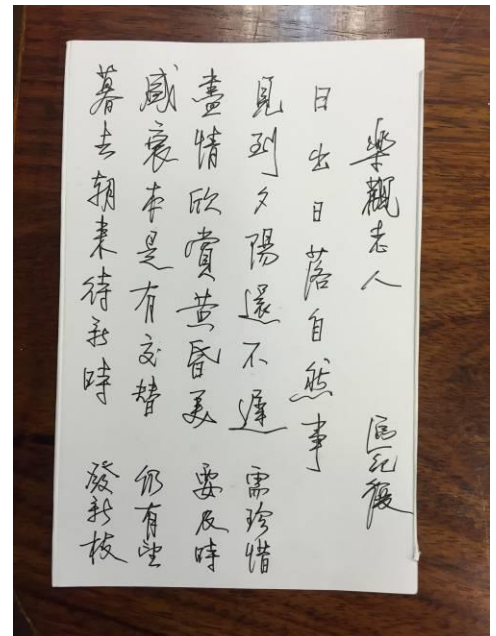 樂觀老人 區紀復
日出日落自然事
見到夕陽還不遲 需珍惜
盡情欣賞黃昏美 要及時
盛衰本是有交替 仍有望
暮去朝來待新時 發新枝